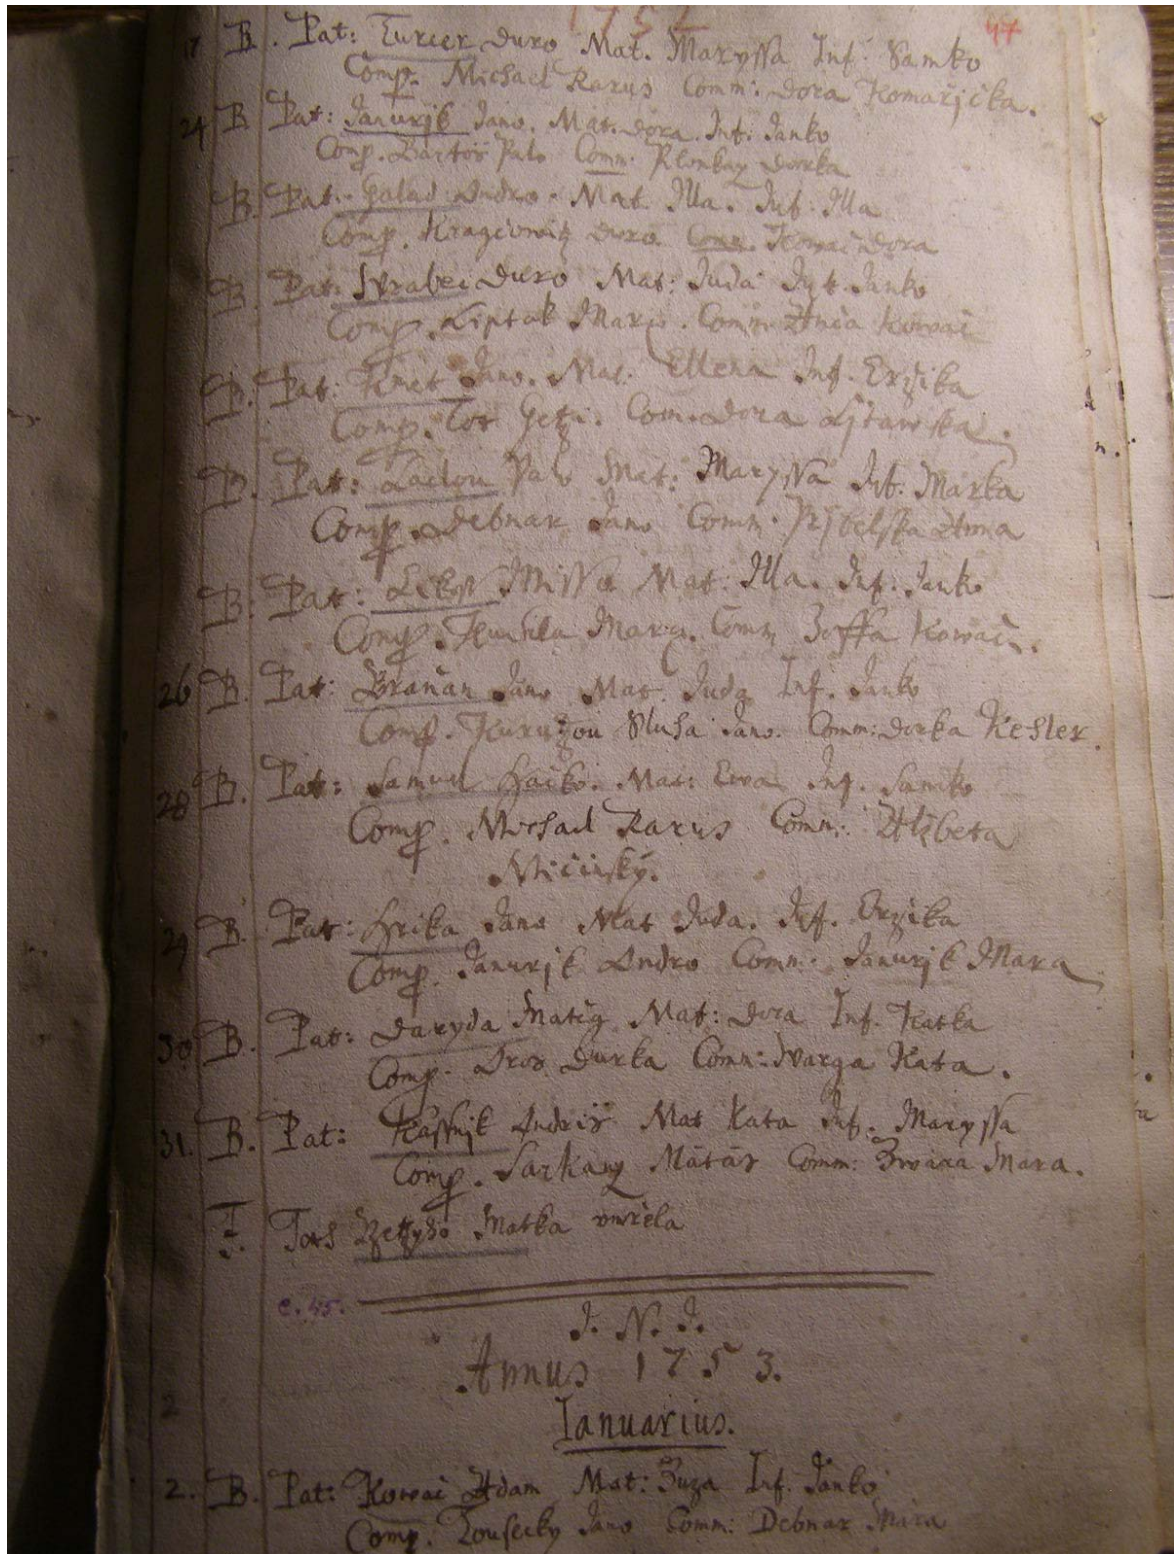 1752 47
17 B. Pat: Turcer Duro Mat. Maryssa Inf: Samko
Comp. Michael Karus Comm: Dora Komarjcka.
24 B. Pat: Janurjk Jano. Mat. Dora. Inf: Janko
Comp. Bartoš Palo Comm: Dorka
B. Pat: Galad Andro. Mat Illa. Inf: Illa
Comp. Duro Comm. Kowač Dora
B Pat: Wrabec Duro Mat: Juda Inf. Janko
Comp. Liptak Marci. Comm: Anča Kowač
B. Pat. Kmet Jano. Mat: Ellena Inf. Eržika
Comp. Tot Getzi. Com. Dora
B. Pat: Palo Mat: Maryssa Inf. Marka
Comp. Debnar Jano Comm. Anna
B. Pat: Missa Mat: Illa. Inf: Janko
Comp. Comm Zoffa Kowač.
26 B. Pat: Brañan Jano Mat Juda Inf. Janko
Comp. Sluha Jano. Comm: Dorka Kesler.
28 B. Pat: Samuel Hačko. Mat: Ewa Inf. Samko
Comp. Michael Karus Comm: Alžbeta
Mičinsky.
29 B. Pat: Hrika Jano Mat Juda. Inf. Eržika
Comp. Janurjk Andro Comm. Janurjk Mara
30. B. Pat: Daryda Matig Mat: Dora Inf. Katka
Comp. Oros Durka Comm: Warga Kata.
31. B. Pat: Kassnjk Andriš Mat Kata Inf. Maryssa
Comp. Sarkany Mataš Comm: Zwara Mara.
F. Matka umrela
c. 45.
J. N. J.
Annus 1753.
Ianuarius.
2
2. B. Pat: Kowač Adam Mat: Zuza Inf. Janko
Comp. Jano Comm: Debnar Mara